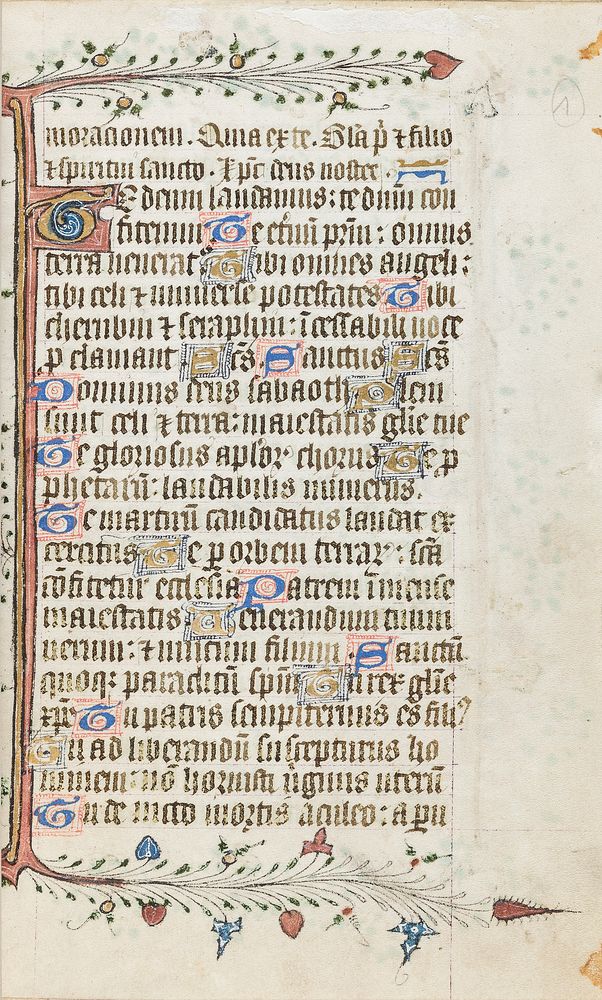 moracionem. Quia ex te. Gl̄a p̄ ⁊ filio
⁊ spiritui sancto. Xp̄c deus noster.
Te deum laudamus: te dn̄m con
fitemur Te et̄nū prīm: omnis
terra uenerat̄ Tibi omnes angeli:
tibi celi ⁊ uniuerse potestates Tibi
cherubin ⁊ seraphin: īcessabili uoce
p clamant Sc̄s. Sanctus Sc̄s
Dominus deus sabaoth Pleni
sunt celi ⁊ terra: maiestatis glīe tue
Te gloriosus aplōꝝ chorus Te p
phetarū: laudabilis numerus.
Te martirū candidatus laudat ex
ercitus Te p orbem terraꝝ: scā
cōfitetur ecclesia Patrem īmense
maiestatis Uenerandum tuum
uerum: ⁊ unicum filium. Sanctū
quoqꝫ paraclitū spm̄ Tu rex glīe
xpē Tu patris sempiternus es filiꝰ
Tu ad liberandū suscepturus ho
minem: nō horruisti ūginis uterū
Tu de uicto mortis aculeo: a peru
1